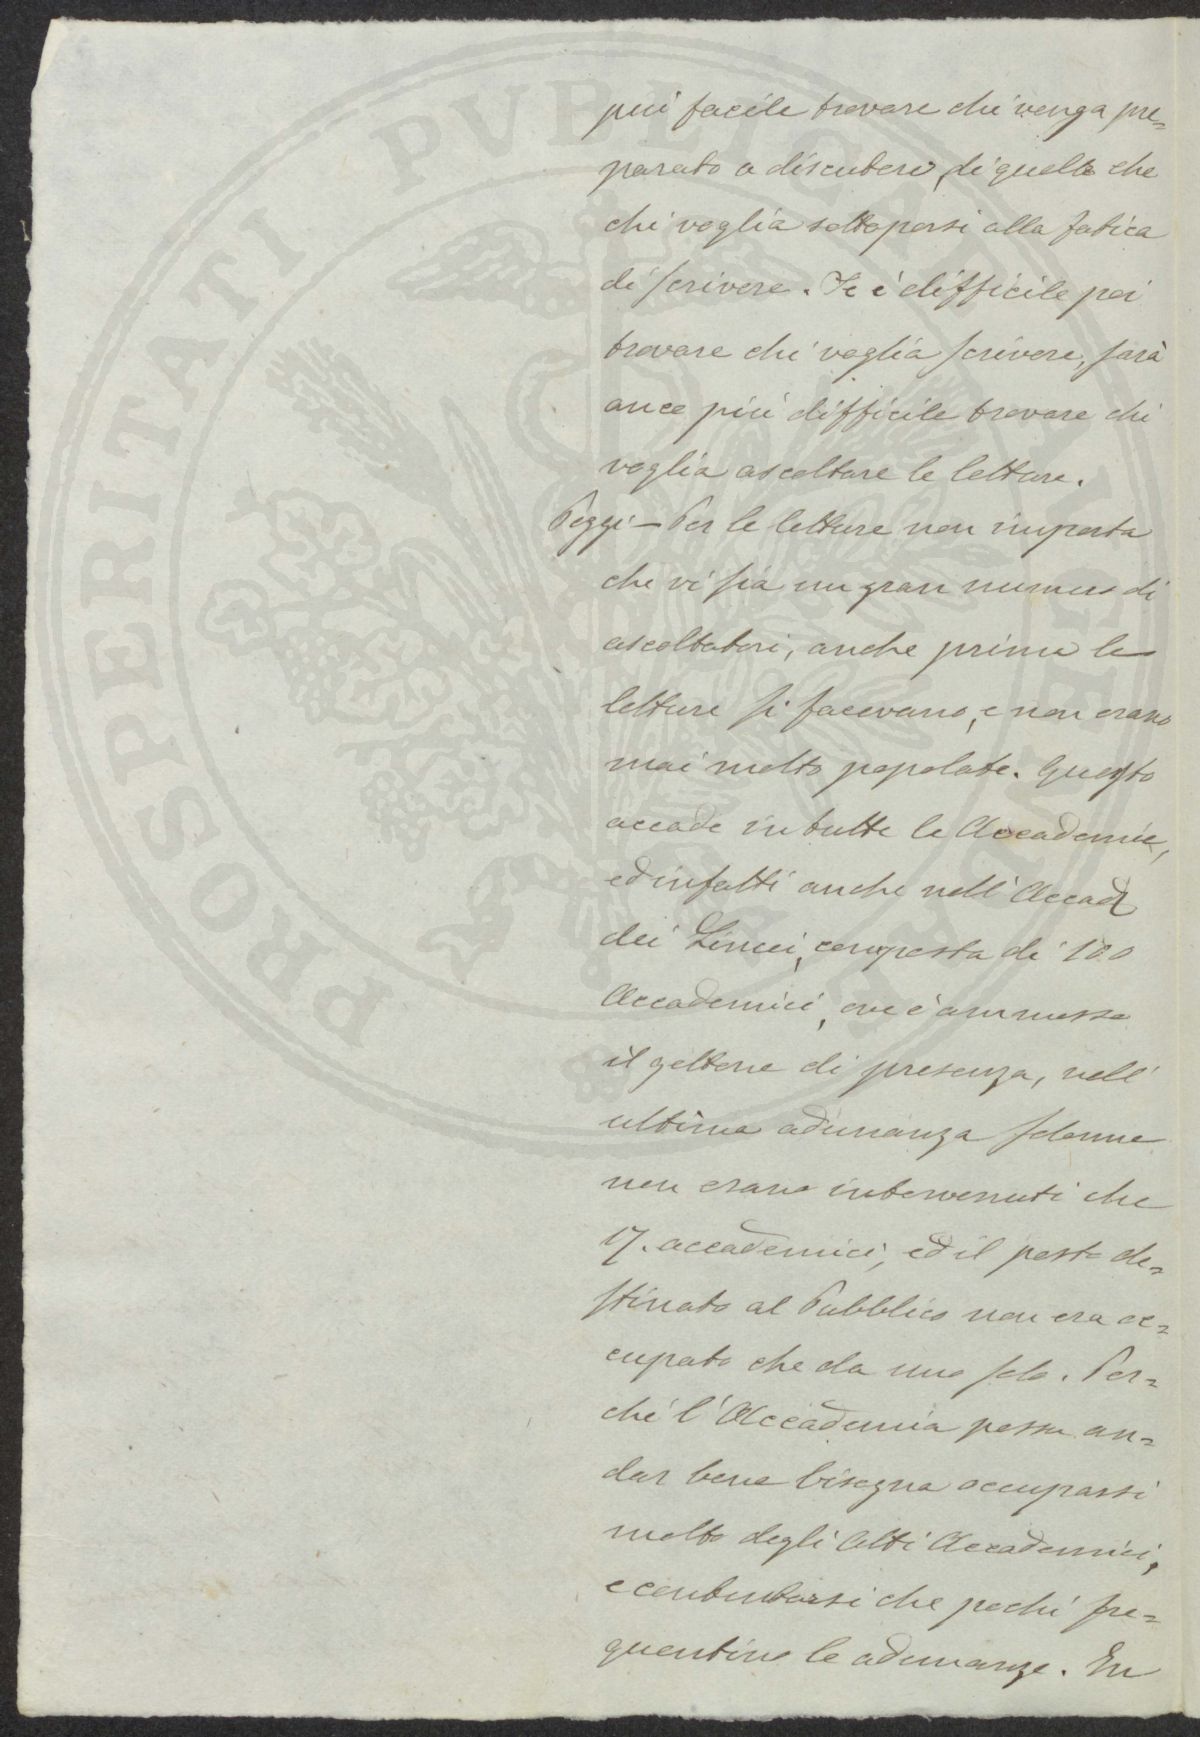 più facile trovare chi venga pre=
parato a discutere, di quello che
chi voglia sottoporsi alla fatica
di scrivere. Se è difficile poi
trovare chi voglia scrivere, sarà
anco più difficile trovare chi
voglia ascoltare le letture.
Poggi — Per le letture non importa
che vi sia un gran numero di
ascoltatori, anche prima le
letture si facevano, e non erano
mai molto popolate. Questo
accade in tutte le Accademie,
ed infatti anche nell' Accad
dei Lincei, composta di 100
Accademici, ove è ammesso
il gettone di presenza, nell'
ultima adunanza solenne
non erano intervenuti che
17. accademici, ed il posto de=
stinato al Pubblico non era oc=
cupato che da uno solo. Per=
chè l'Accademia possa an=
dar bene bisogna occuparsi
molto degli Atti Accademici,
e contentarsi che pochi fre=
quentino le adunanze. In
PROSPERITATI PVBLICAE AVGENDAE